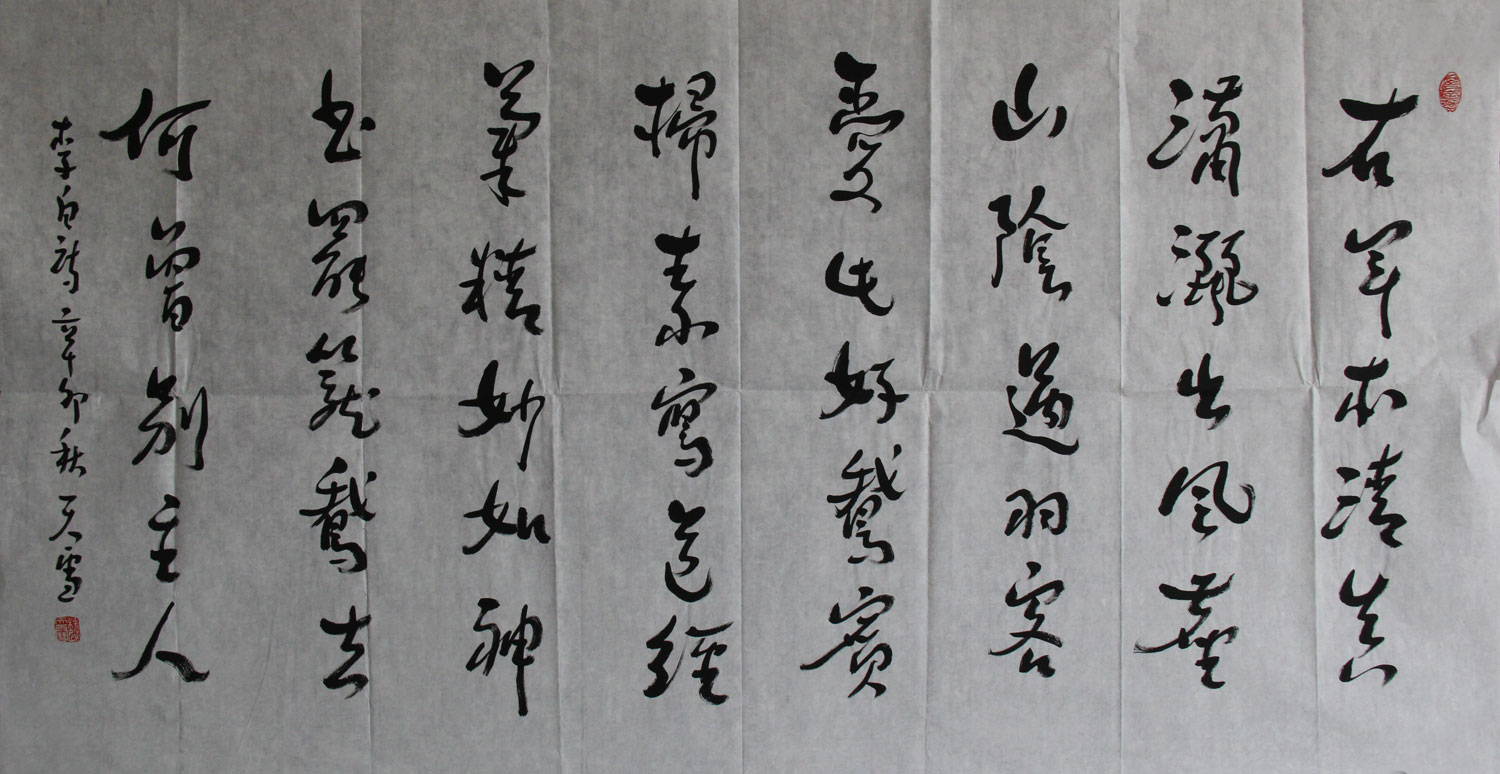 右軍本清真
瀟灑出風塵
山陰過羽客
愛此好鵝賓
掃素寫道經
筆精妙如神
書罷籠鵝去
何曾別主人
李白詩辛卯秋天雪